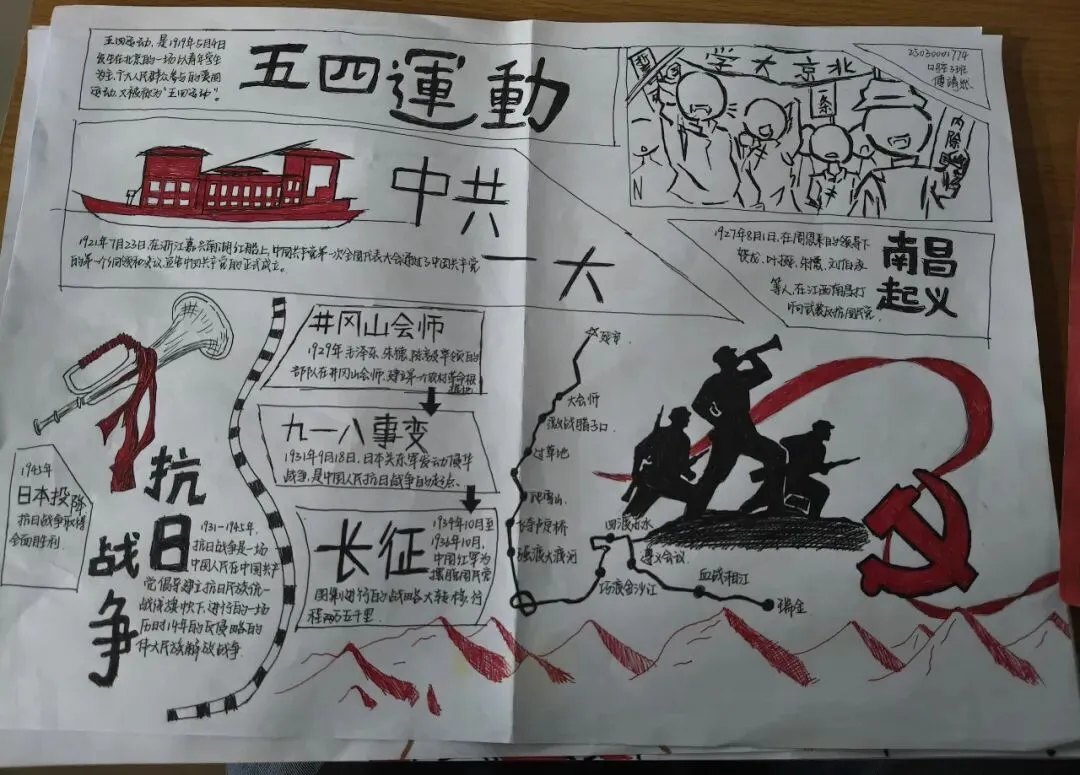 五四运动，是1919年5月4日
发生在北京的一场以青年学生
为主，广大人民群众参与的爱国
运动，又被称为"五四风雷"。
五四運動
北京大學
内除
中共
一大
1921年7月23日，在浙江嘉兴南湖红船上，中国共产党第一次全国代表大会通过了中国共产党
的第一个纲领和决议，宣告中国共产党的正式成立。
1927年8月1日，在周恩来的领导下
贺龙、叶挺、朱德、刘伯承
等人，在江西南昌打
响武装反抗国民党
南昌
起义
井冈山会师
1929年毛泽东、朱德、陈毅
部队在井冈山会师，建立第一个农村革命根
据地
九一八事变
1931年9月18日，日本关东军发动侵华
战争，是中国人民抗日战争的起点。
长征
1934年10月至
1936年10月，
中国红军为
摆脱国民党
围剿进行的战略大转移，行
程两万五千里
1945年
日本投降
抗日战争取得
全面胜利
抗日
战争
1931-1945年，
抗日战争是一场
中国人民在中国共产
党倡导建立抗日民族统一
战线旗帜下，进行的一场
历时14年的反侵略的
伟大民族解放战争
延安
大会师
激战腊子口
过草地
爬雪山
飞夺泸定桥
强渡大渡河
四渡赤水
遵义会议
巧渡金沙江
血战湘江
瑞金